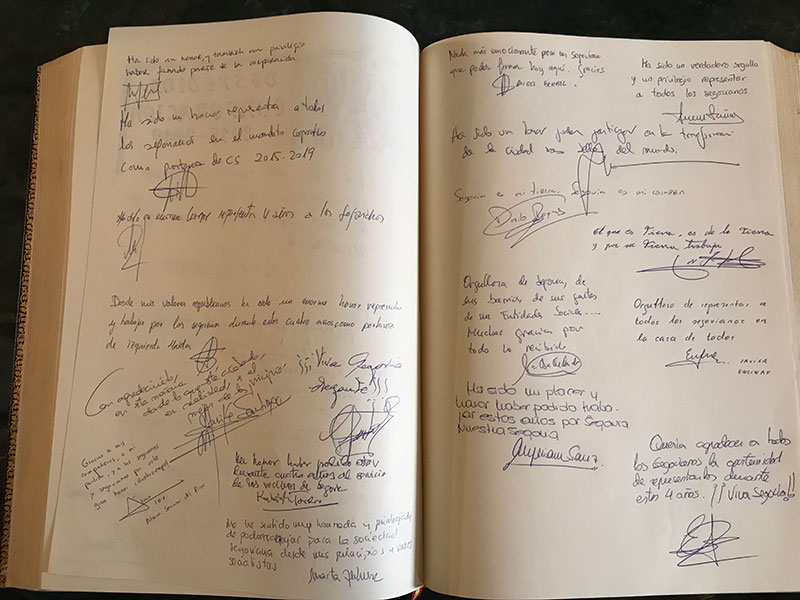 Ha sido un honor, y también un privilegio
haber formado parte de la corporación.
Ha sido un honor representar a todos
los segovianos en el mandato corporativo
como portavoz de CS 2015-2019
un enorme honor representar 4 años a los segovianos
Desde mis valores republicanos ha sido un enorme honor representar
y trabajar por los segovianos durante estos cuatro años como portavoz
de izquierda Unida
Con agradecimiento,
en esta mañana
¡¡¡Viva Segovia
Gracias a mis
compañeros, a mi
partido, y a los segovianos
y segovianas por este
gran honor
Un honor haber podido estar
durante cuatro años al servicio
de los vecinos de Segovia
Me he sentido muy honrada y privilegiada
de poder trabajar para la sociedad
segoviana desde mis principios y valores
socialistas
Marta
Nada más emocionante para un segoviano
que poder firmar hoy aquí. Gracias
Ha sido un verdadero orgullo
y un privilegio representar
a todos los segovianos
Ha sido un honor poder participar en la
de la ciudad más bella del mundo.
Segovia es mi tierra, Segovia es mi corazón
El que es Tierra, es de la Tierra
y por su Tierra trabaja
Orgullosa de Segovia, de
sus barrios, de sus gentes
de su Entidades Sociales....
Muchas gracias por
todo lo recibido
Orgulloso de representar a
todos los segovianos en
la casa de todos
JAVIER
ENCINAS
Ha sido un placer y
honor haber podido traba-
jar estos años por Segovia
Nuestra Segovia
Querría agradecer a todos
los segovianos la oportunidad
de representarlos durante
estos 4 años. ¡¡Viva Segovia!!